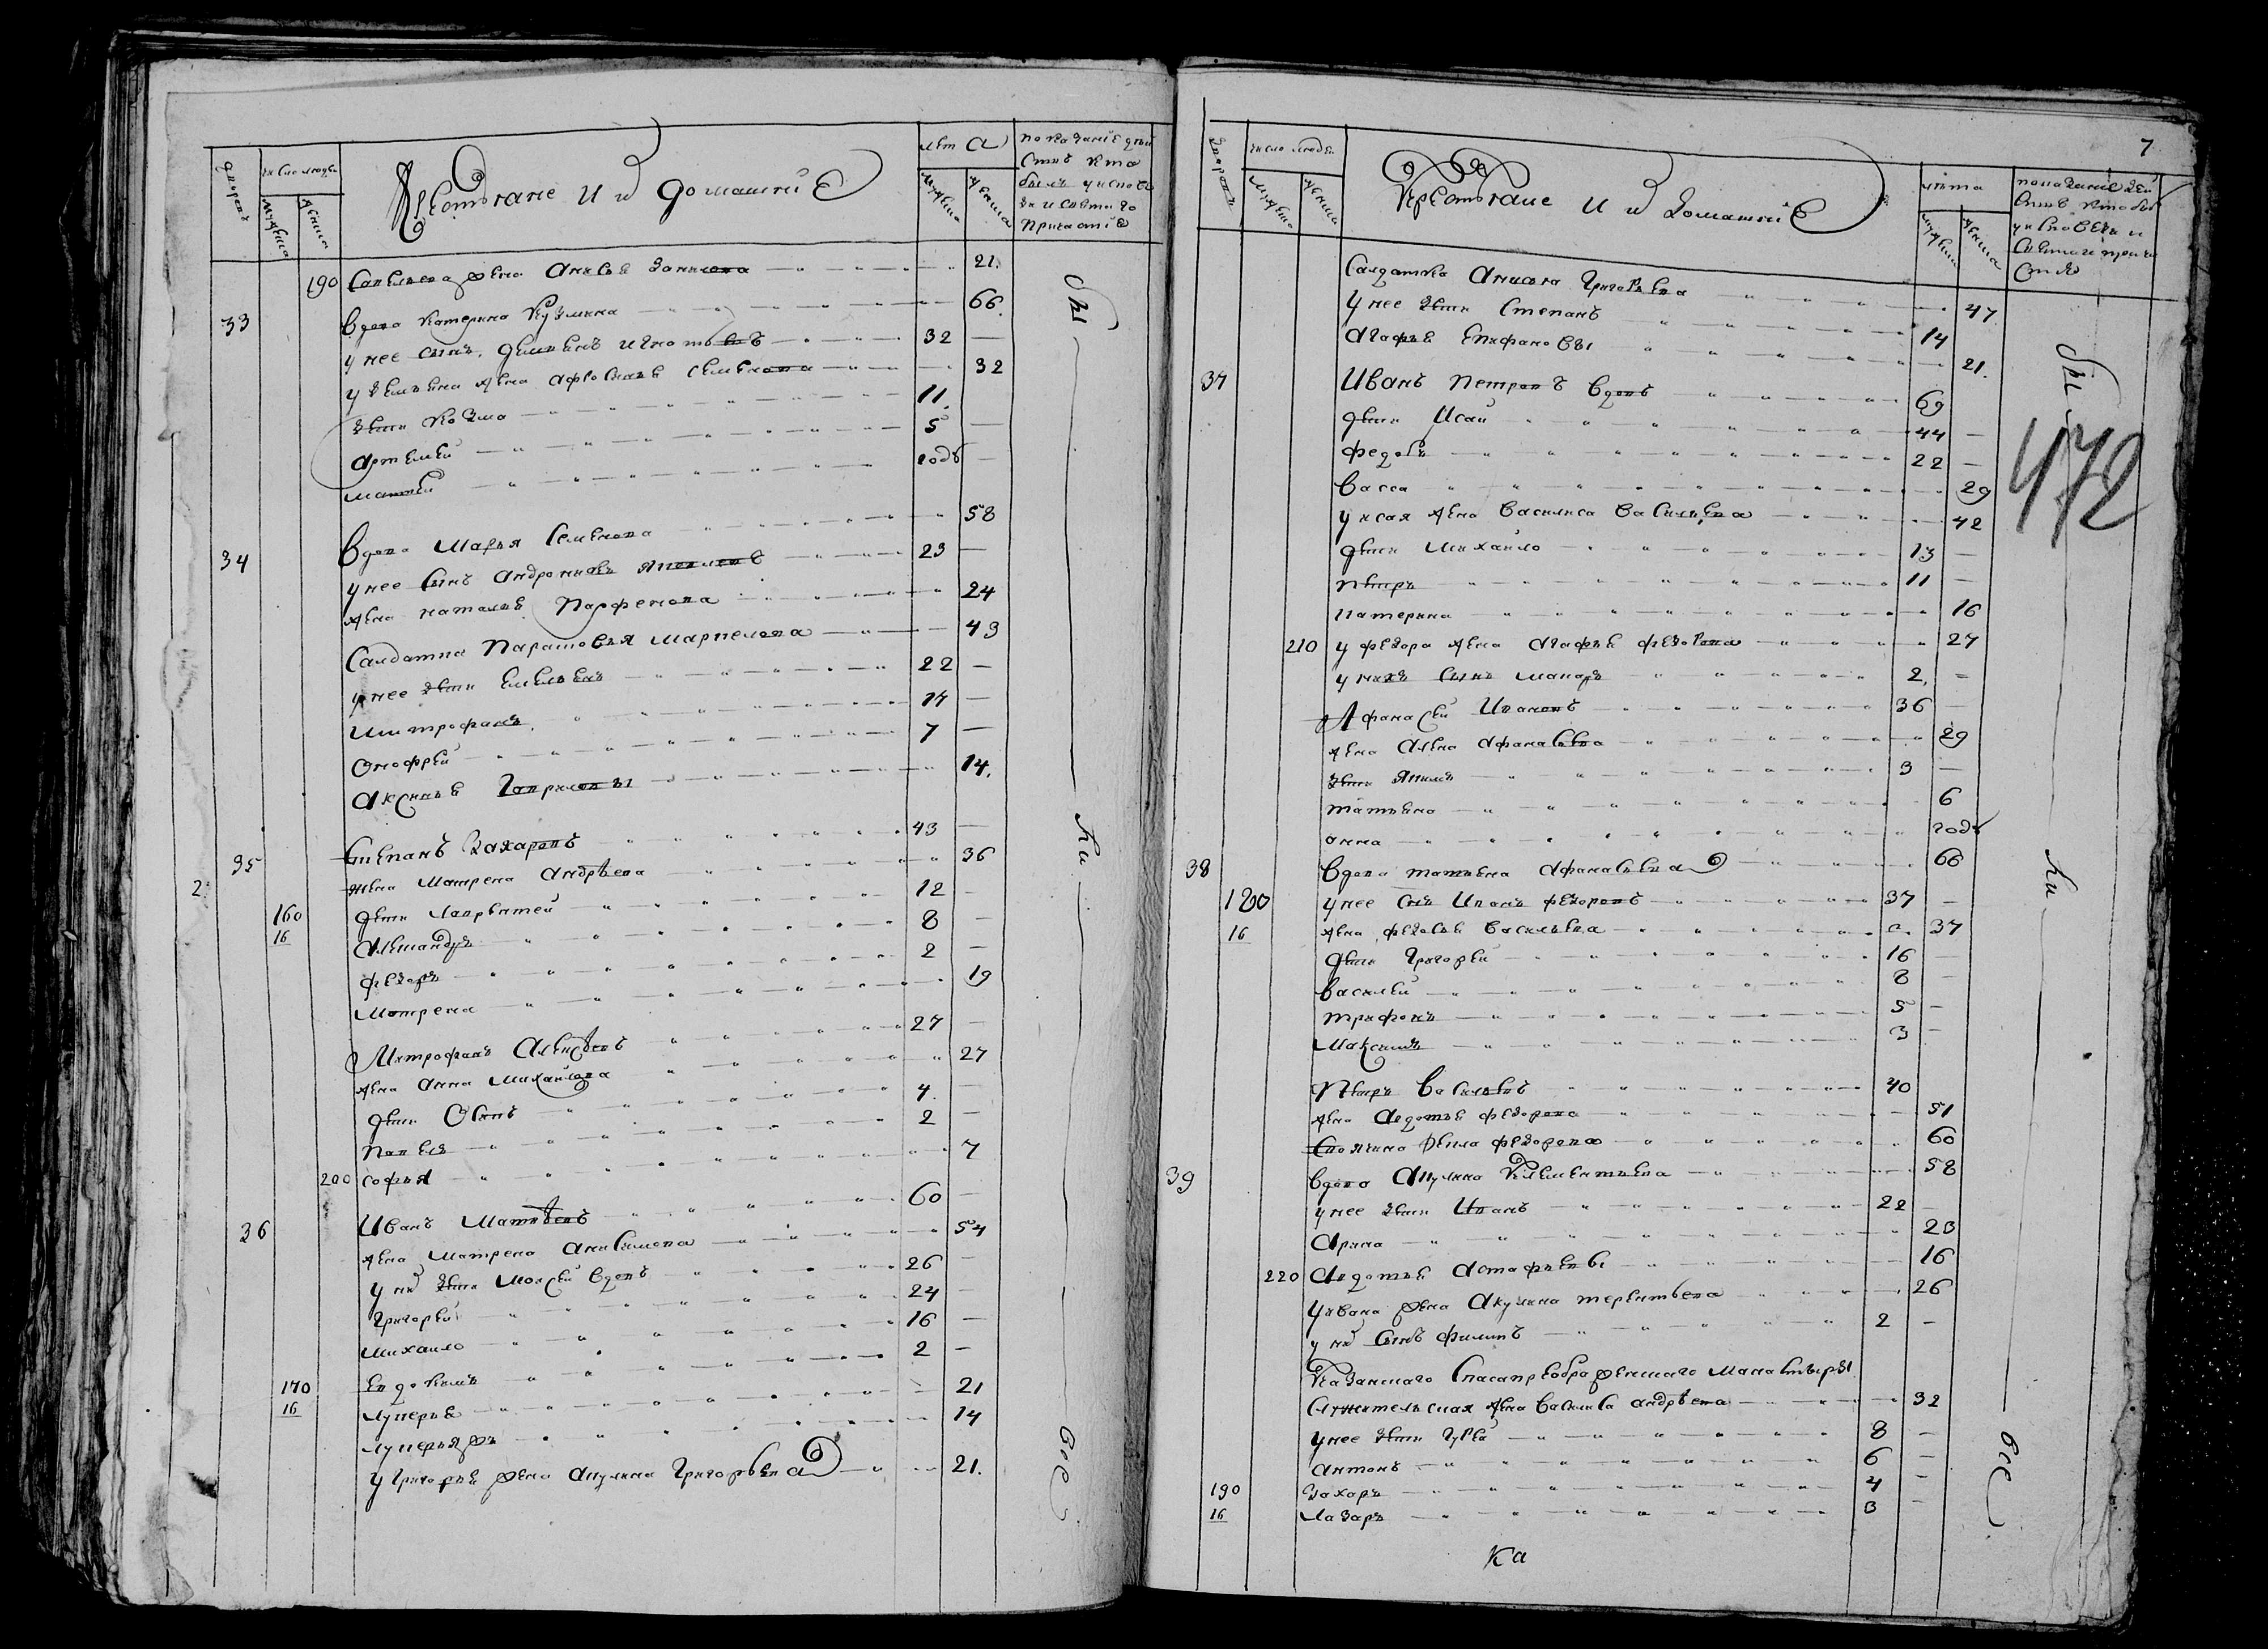 дворовъ
число людей
мужеска
женска
Крестьяне и ихъ домашнии
лета
мужеска
женска
показание дей
ствъ кто
былъ у испове
ди и святаго
причастия
190 Савельева жена Анисья 21.
33 Вдова Катерина Кузмина 66.
у нее сынъ Демьянъ Игнатьевъ 32 —
у Демьяна жена Афросинья Семенова 32
дети Козма 11.
Артемей 5 —
Матвей годъ —
34 Вдова Марья Семенова 58
у нее сынъ Андроникъ Яковлевъ 23 —
жена Наталья Парфенова 24
Салдатка Парасковья Маркелова 43
у нее дети Емельянъ 22 —
Митрофанъ 14 —
Онофрей 7 —
Аксинья Гавриловы 14.
35 Степанъ Захаровъ 43 —
жена Матрена Андреева 36
160 дети Лаврентей 12 —
16 Александръ 8 —
Федоръ 2 —
Матрена 19
Митрофанъ Алексеевъ 27 —
жена Анна Михайлова 27
дети Осипъ 4. —
Павелъ 2 —
200 Софья 7
36 Иванъ Матвеевъ 60 —
жена Матрена Анисимова 54
у них дети Моисей вдовъ 26 —
Григорей 24 —
Михайло 16 —
170 Евдокимъ 2 —
16 Лукерья 21
Лукерья жъ 14
у Григорья жена Акулина Григорьева 21.
бы
ли
все
7
дворовъ
число людей
мужеска
женска
Крестьяне и ихъ домашнии
лета
мужеска
женска
показание дей
ствъ кто былъ
у исповеди и
святаго прича
стия
Салдатка Анисья Григорьева 47
у нее дети Степанъ 14
Агафья Епифановы 21.
37 Иванъ Петровъ вдовъ 69
дети Исай 44 —
Федоръ 22 —
Васса 29
у Исая жена Василиса Васильева 42
дети Михайло 13 —
Петръ 11 —
Катерина 16
210 у Федора жена Агафья Федотова 27
у нихъ сынъ Макаръ 2. —
Афанасей Ивановъ 36 —
жена Алена Афанасьева 29
дети Яковъ 3 —
Татьяна 6
Анна годъ
38 Вдова Татьяна Афанасьева 66
180 у нее сынъ Иванъ Федоровъ 37 —
16 жена Федосья Васильева 37
дети Григорей 16 —
Василей 8 —
Трифонъ 5 —
Максимъ 3 —
Петръ Васильевъ 40
жена Авдотья Федорова 51
Свояченица Фекла Федорова 60
39 Вдова Акулина Клементьева 58
у нее дети Иванъ 22 —
Арина 23
220 Авдотья Астафьевы 16
у Ивана жена Акулина Терентьева 26
у них сынъ Филипъ 2 —
Казанскаго Спасапреображенскаго манастыря
служительская жена Василиса Андреева 32
у нее дети Гурей 8 —
Антонъ 6 —
190 Захаръ 4 —
16 Лазарь 3 —
ка
бы
ли
все
472